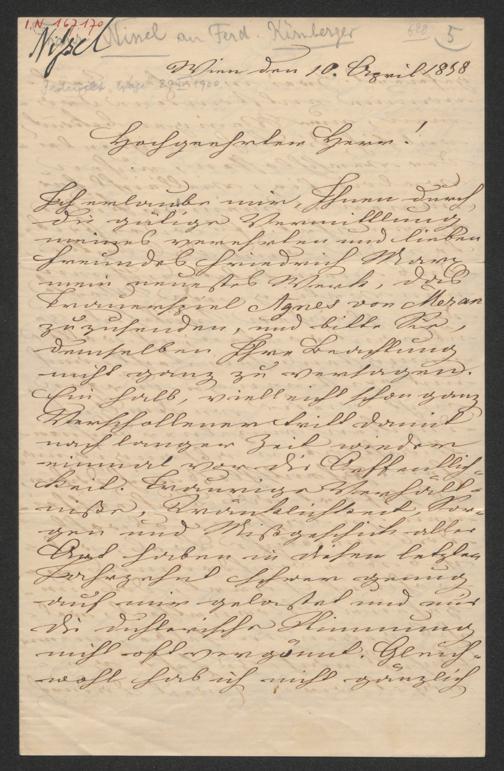 I.N. 167.170
Nißel Nissel an Ferd. Kürnberger 5
Wien den 10. April 1858
Hochgeehrter Herr!
Ich erlaube mir, Ihnen durch
die gütige Vermittlung
meines verehrten und lieben
Freundes Friedrich Marx
mein neuestes Werk, das
Trauerspiel Agnes von Meran
zuzusenden, und bitte Sie,
demselben Ihre Beachtung
nicht ganz zu versagen.
Ein halb, vielleicht schon ganz
Verschollener tritt damit
nach langer Zeit wieder
einmal vor die Oeffentlich-
keit. Traurige Verhält-
niße, Kränklichkeit, Sor-
gen und Mißgeschick aller
Art haben in diesem letzten
Jahrzehnt schwer genug
auf mir gelastet und mir
die dichterische Stimmung
nicht oft vergönnt. Gleich-
wohl hab ich nicht gänzlich